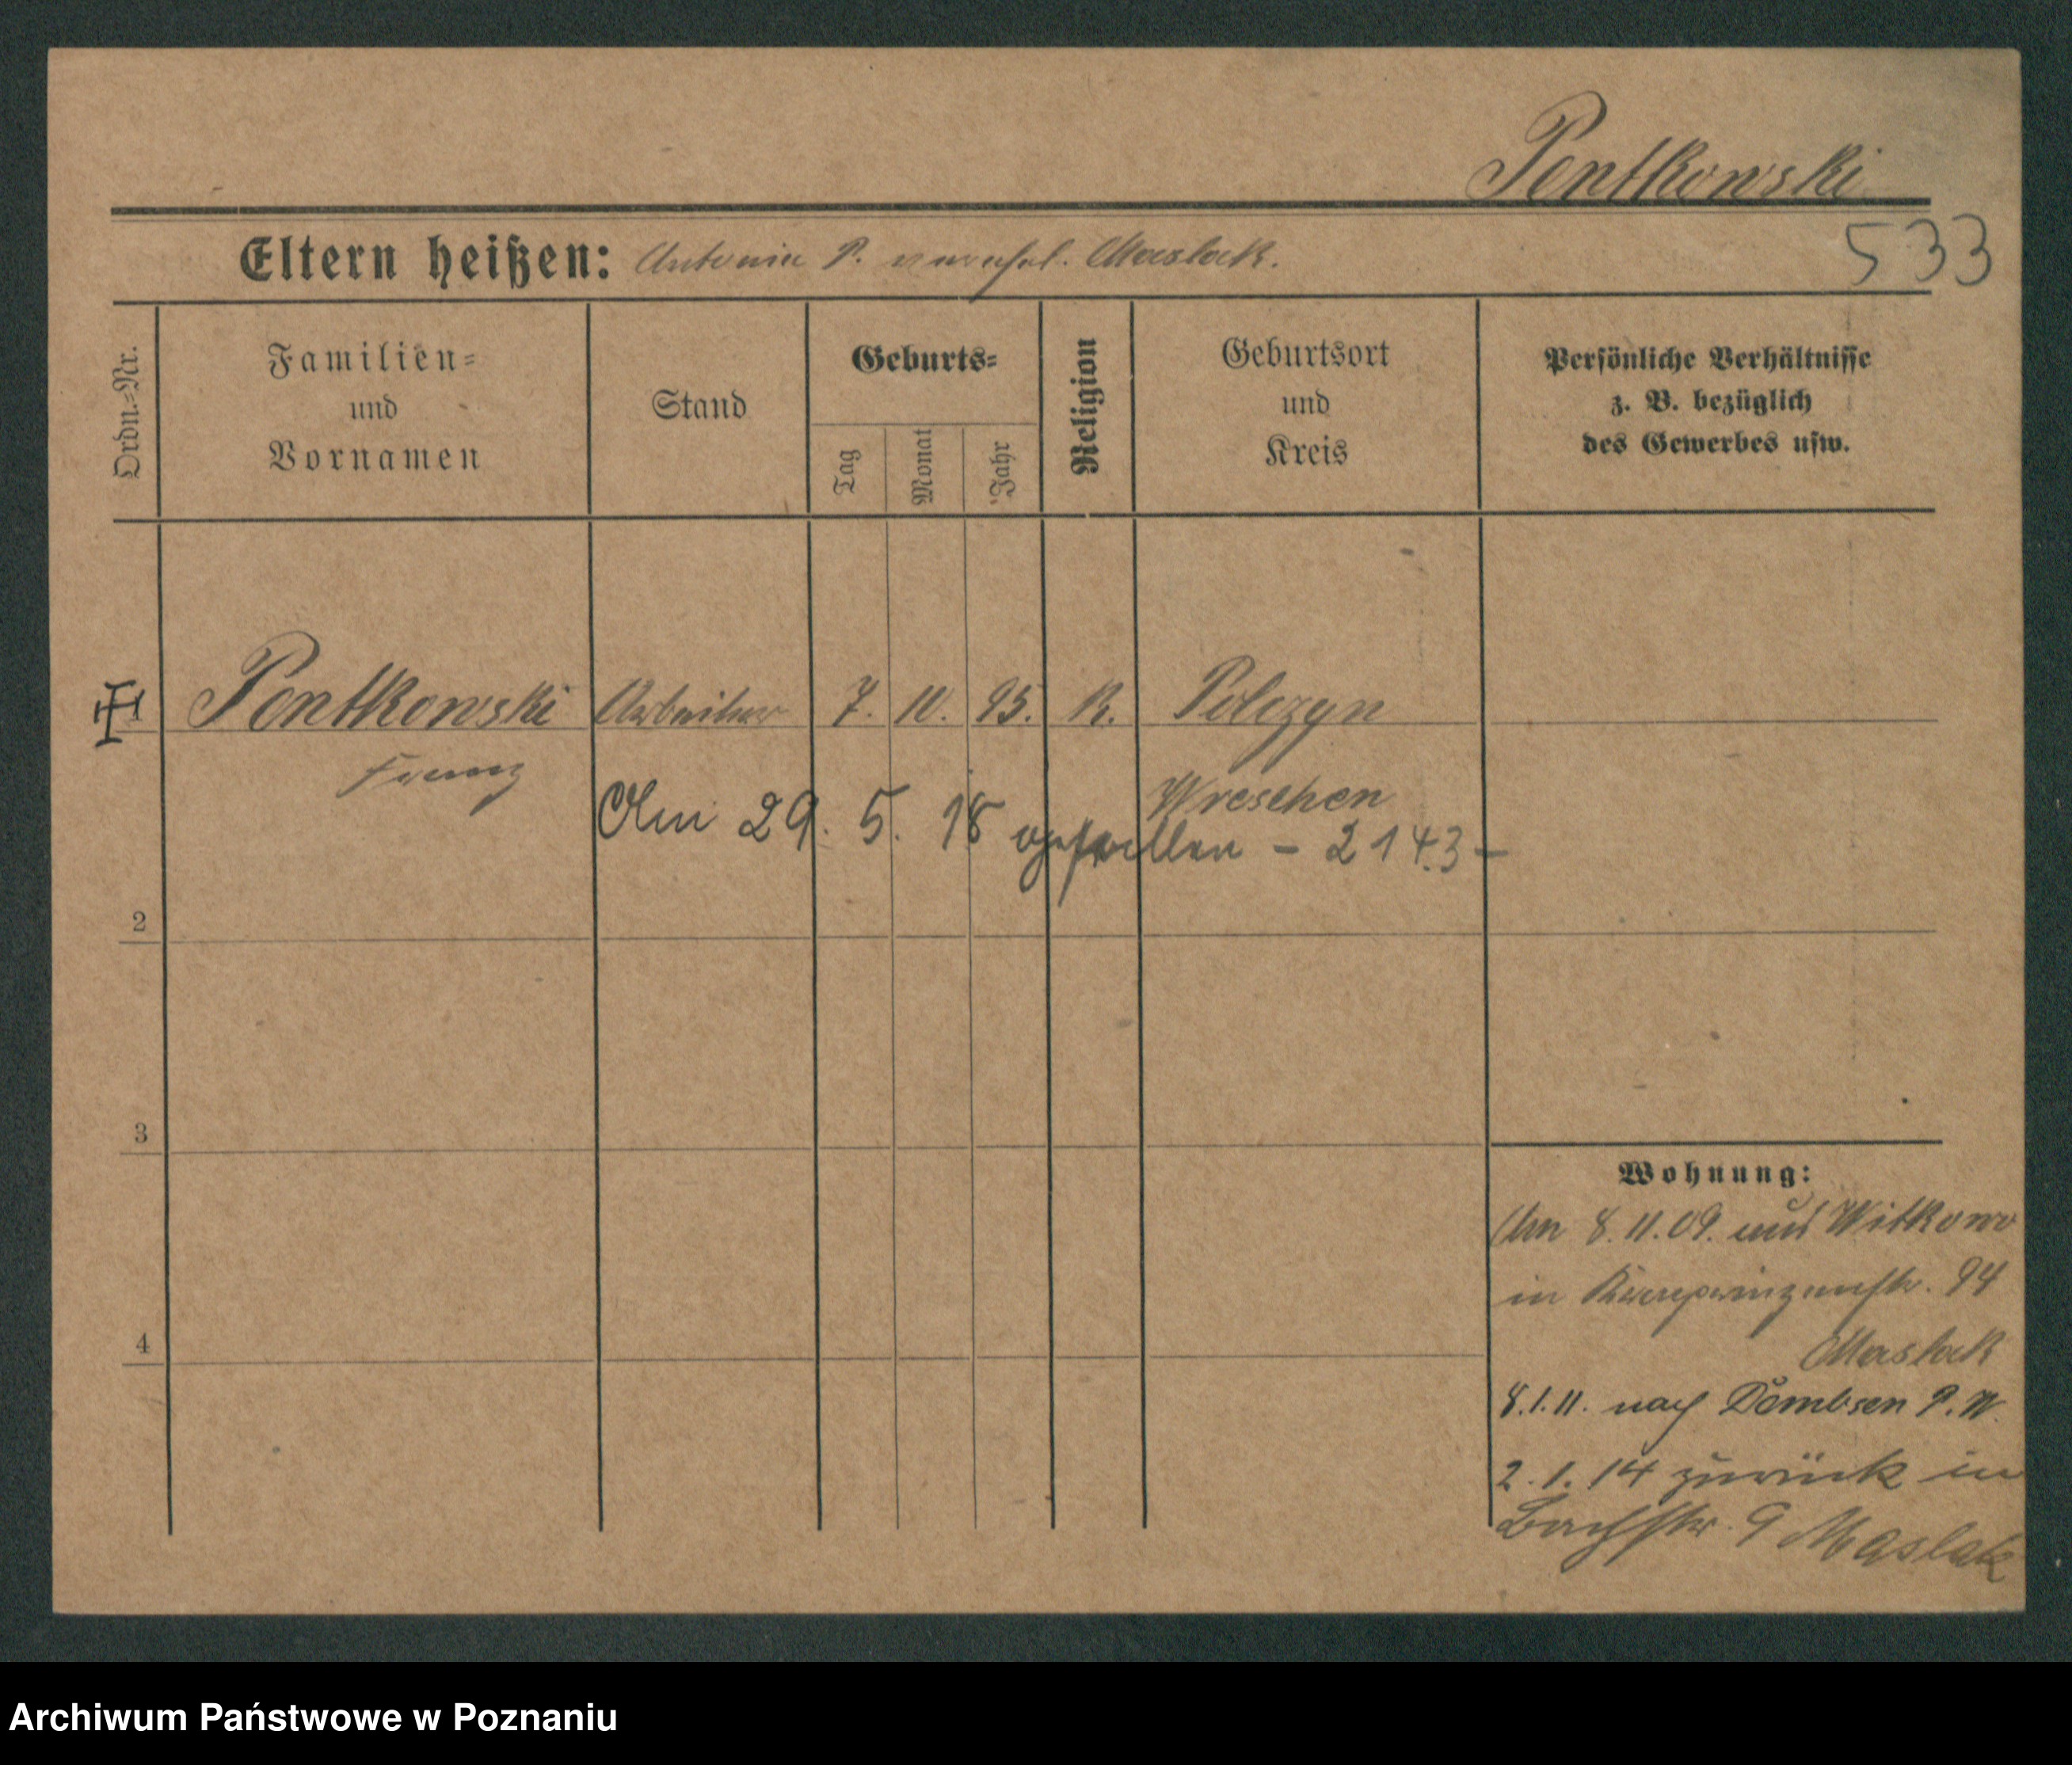 Pentkowski
Eltern heißen: Antonie P. verehel. Maslak.
533
Ordn.-Nr.
Familien-
und
Vornamen
Stand
Geburts-
Tag
Monat
Jahr
Religion
Geburtsort
und
Kreis
Persönliche Verhältnisse
z. B. bezüglich
des Gewerbes usw.
1 Pentkowski Arbeiter 7. 10. 95. K. Polczyn
Franz
Wreschen
Am 29. 5. 18 gefallen – 2143 –
2
3
4
Wohnung:
Am 8.11.09. aus Witkowo
in Kronprinzenstr. 94
Maslak
8.1.11. nach Dembsen P. W.
2.1.14 zurück in
Bachstr. 9 Maslak
Archiwum Państwowe w Poznaniu